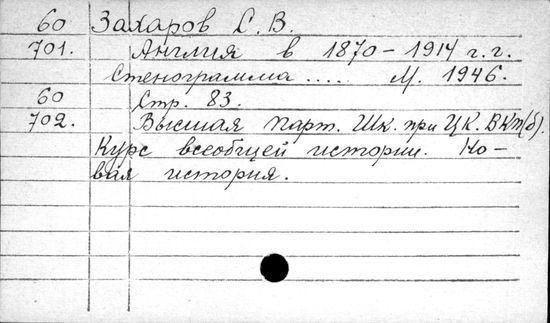 60 Захаров С. В.
701. Англия в 1870-1914 г.г.
Стенограмма ..... М. 1946.
60 Стр. 83.
702. Высшая Парт. Шк. при ЦК. ВКП(б).
Курс всеобщей истории. Но-
вая история.